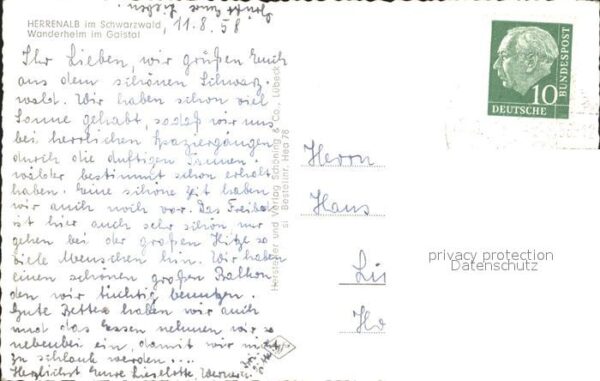 HERRENALB im Schwarzwald
Wanderheim im Gaistal
11.8.58
Ihr Lieben, wir grüßen Euch
aus dem schönen Schwarz-
wald. Wir haben schon viel
Sonne gehabt, sodaß wir uns
bei herrlichen Spaziergängen
durch die duftigen Tannen-
wälder bestimmt schon erholt
haben. Eine schöne Zeit haben
wir auch noch vor. Das Freibad
ist hier auch sehr schön nur
gehen bei der großen Hitze so
viele Menschen hin. Wir haben
einen schönen großen Balkon
den wir tüchtig benutzen.
Gute Betten haben wir auch
und das Essen nehmen wir so
nebenbei ein, damit wir nicht
zu schlank werden....
Herzlichst Eure Lieselotte, Werner
Hersteller und Verlag Schöning & Co., Lübeck
si Bestellnr. Hea 78
10
DEUTSCHE
BUNDESPOST
Herrn
Hans
privacy protection
Datenschutz